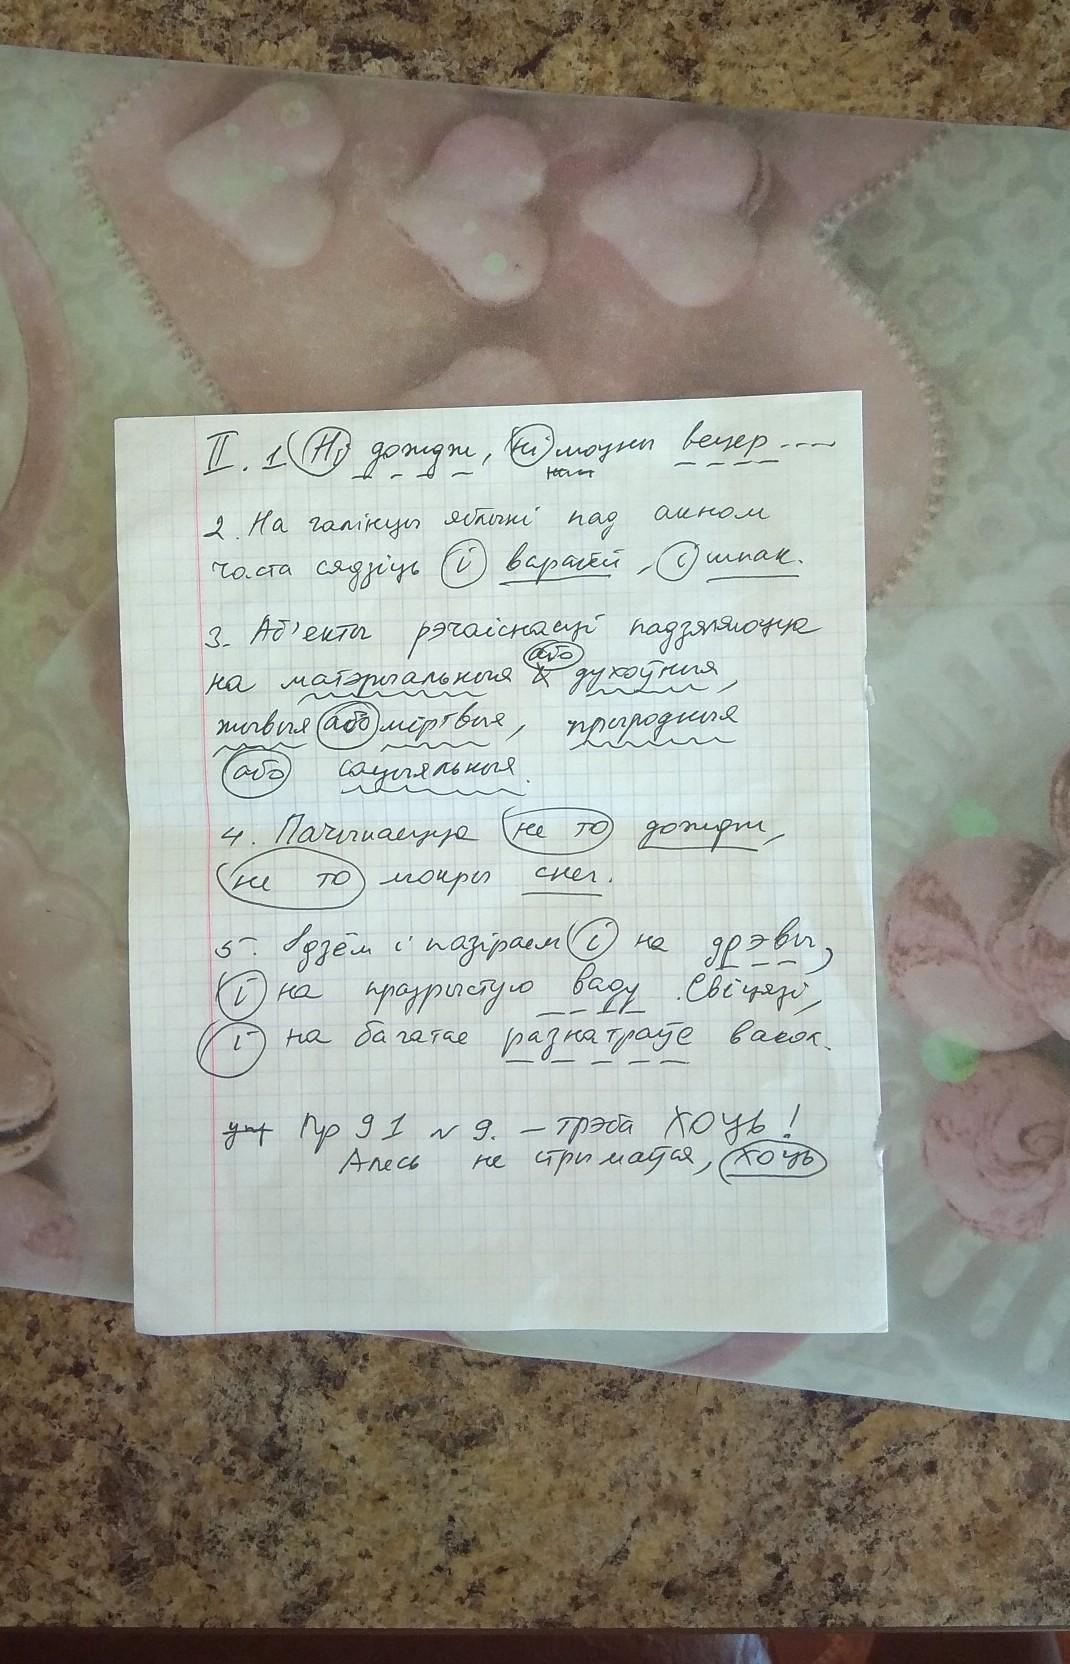 II. 1 Ні дождж, ні моцны вецер ----
2. На галінцы яблыні пад акном
часта сядзіць і варабей, і шпак.
3. Аб'екты рэчаіснасці падзяляюцца
на матэрыяльныя або духоўныя,
жывыя або мёртвыя, прыродныя
або сацыяльныя.
4. Пачынаецца не то дождж,
не то мокры снег.
5. Ідзём і пазіраем і на дрэвы,
і на празрыстую ваду Свіцязі,
і на багатае разнатраўе вакол.
Пр 91 № 9. – трэба ХОЦЬ!
Алесь не стрымаўся, хоць